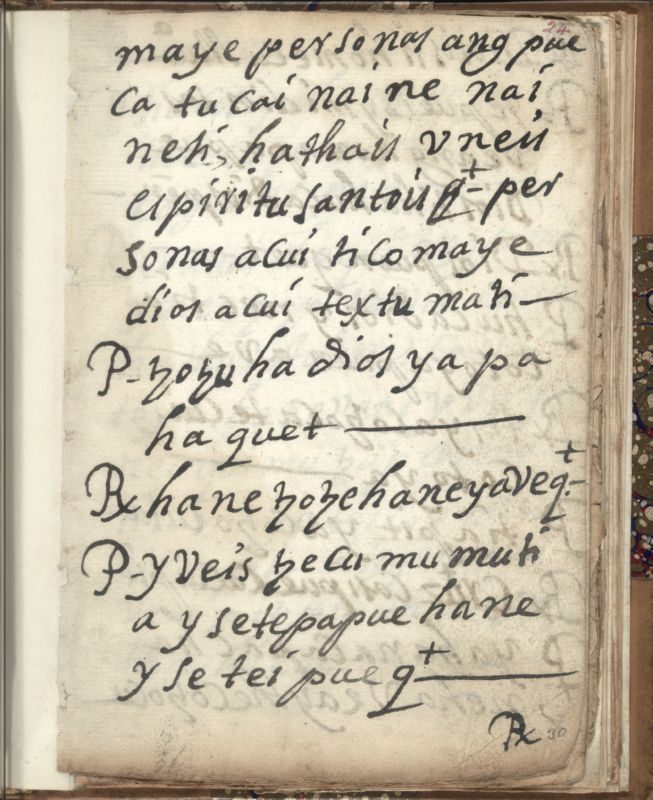 24
maye personas ang pue
ca tu cai nai ne nai
neti, hathais vneis
espiritu santois q+ per
sonas acui ti co maye
dios acui textu mati—
P-ꜩoꜩu ha dios ya pa
ha quet —
Rx hane ꜩoꜩe haneyaveq+-
P-y veis ꜩecu mu muti
a y setepapue hane
y se tei pue q+—
Rx 30